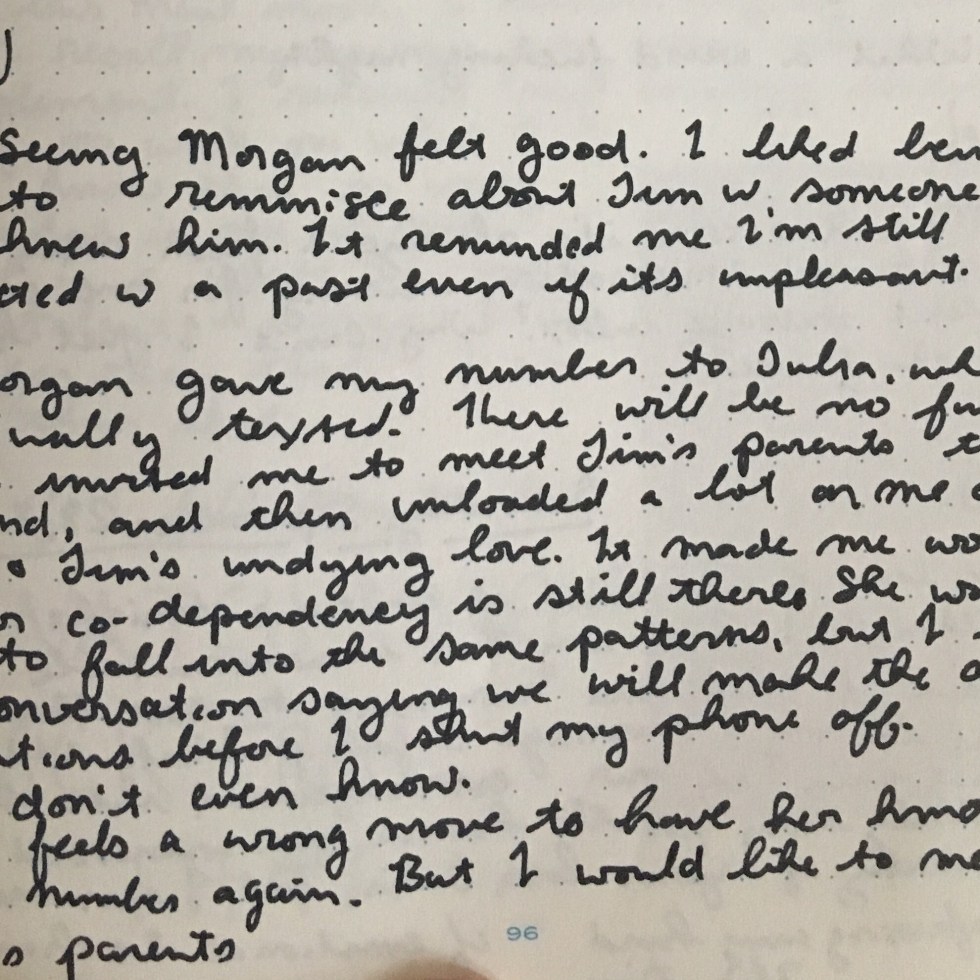 )
Seeing Morgan felt good. I liked bein
to reminisce about Jim w. someone
knew him. It reminded me I'm still
cted w a past even if its unpleasant.
organ gave my number to Julia, wh
ually texted. There will be no fu
invited me to meet Jim's parents t
nd, and then unloaded a lot on me
Jim's undying love. It made me wo
r co-dependency is still there. She wa
to fall into the same patterns, but I
onversation saying we will make the a
tions before I shut my phone off.
don't even know.
feels a wrong move to have her hand
number again. But I would like to me
s parents
96